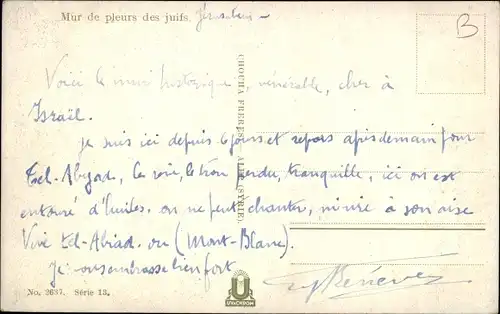 Mur de pleurs des juifs. Jérusalem
B
Voici le mur historique, vénérable, cher à
Israël.
je suis ici depuis 6 jours et repars après demain pour
Tel-Abyad, le voie, le trou perdu, tranquille, ici on est
entouré d' on ne peut chanter, ni rire à son aise
Vive Tel-Abiad. ou (Mont-Blanc).
Je vous embrasse bien fort
CHOUHA FRERES ALEP (SYRIE)
No. 2637. Série 13.
U
UVACHROM